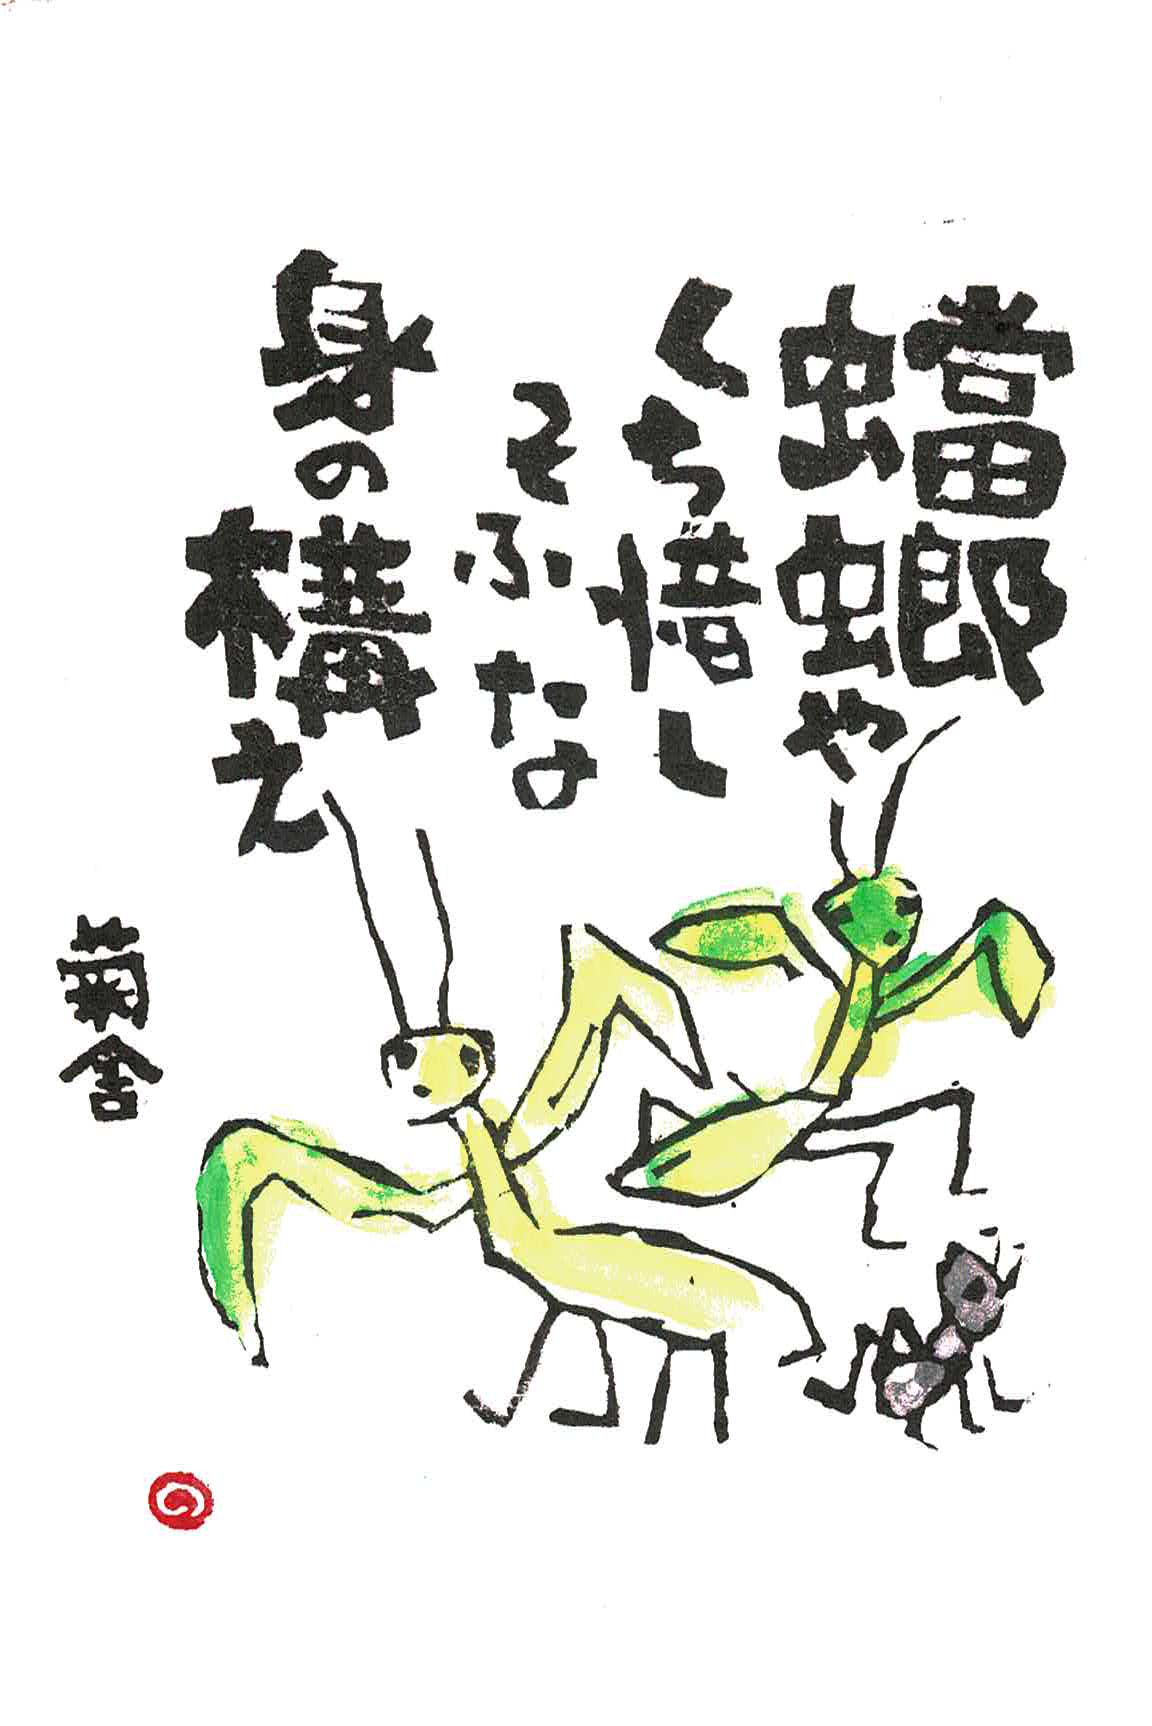 蟷螂や
くち惜し
そふなの
身の構え
菊舎